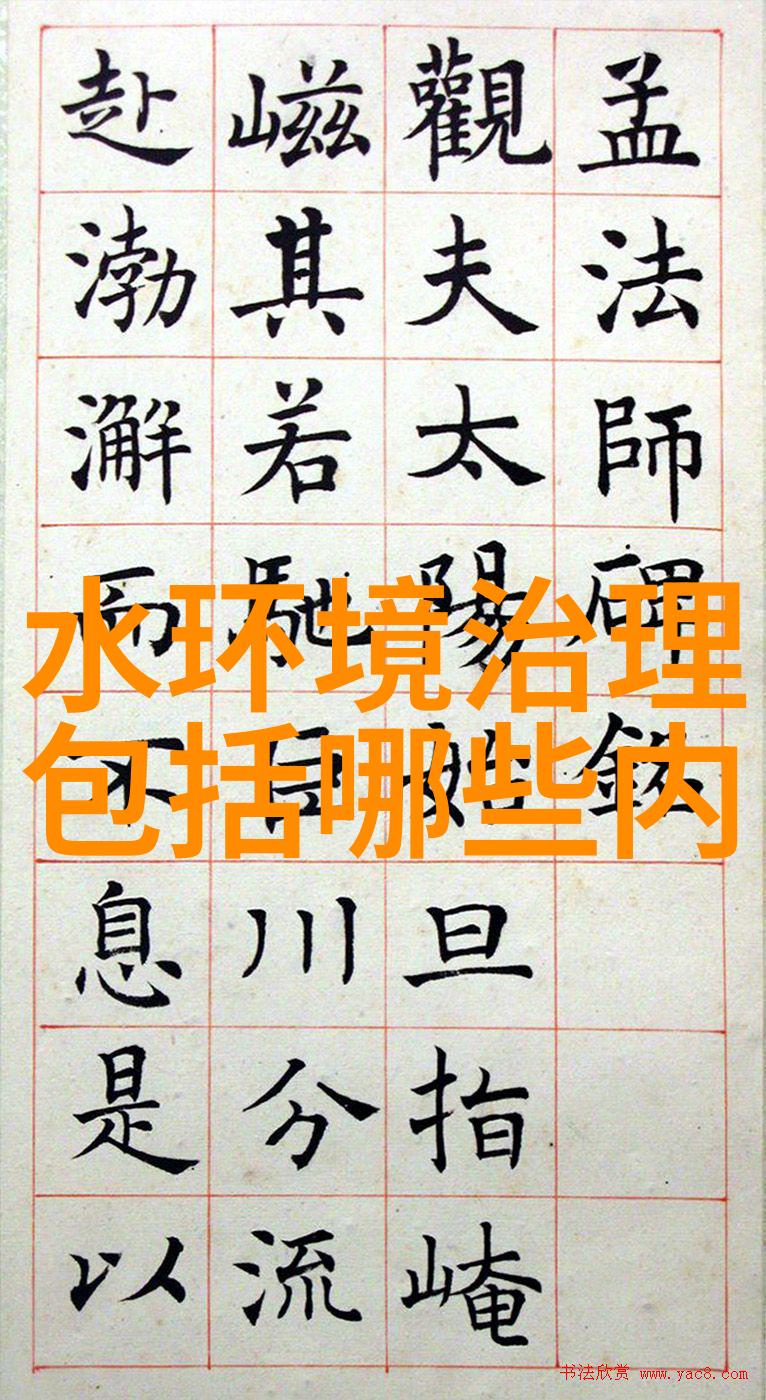 孟法師碑銘
觀夫太陽始旦指崦
嵫其若馳巨川分流
赴渤澥而不息是以
水环境治理
包括哪些内
书法欣赏 www.yac8.com